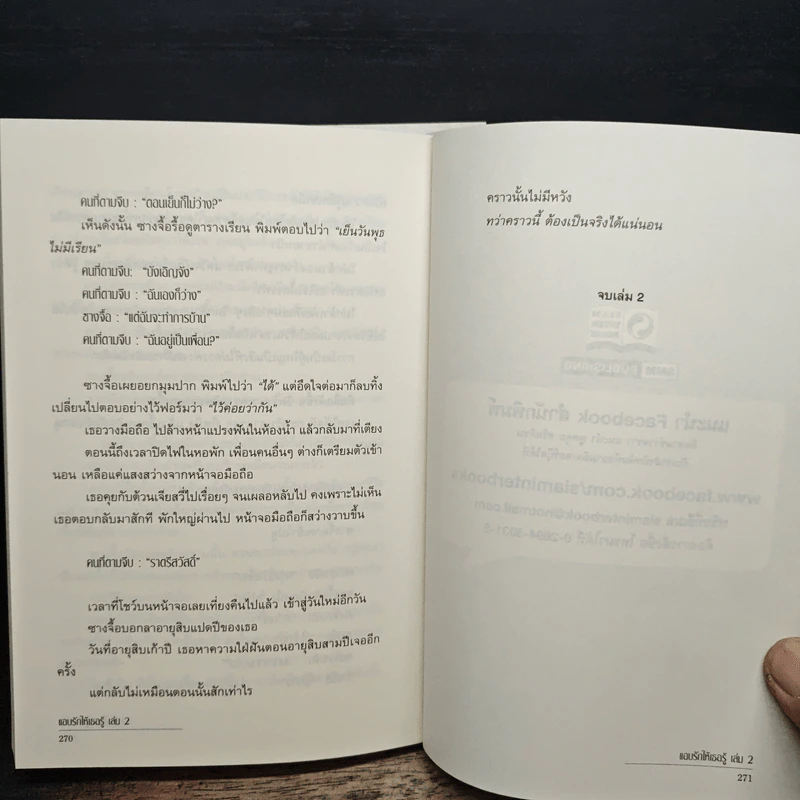 คนที่ตามจีบ : “ตอนเย็นก็ไม่ว่าง?”
เห็นดังนั้น ซางจื้อรื้อดูตารางเรียน พิมพ์ตอบไปว่า “เย็นวันพุธ
ไม่มีเรียน”
คนที่ตามจีบ: “บังเอิญจัง”
คนที่ตามจีบ : “ฉันเองก็ว่าง”
ซางจื้อ : “แต่ฉันจะทำการบ้าน”
คนที่ตามจีบ : “ฉันอยู่เป็นเพื่อน?”
ซางจื้อเผยอยกมุมปาก พิมพ์ไปว่า “ได้” แต่อึดใจต่อมาก็ลบทิ้ง
เปลี่ยนไปตอบอย่างไว้ฟอร์มว่า “ไว้ค่อยว่ากัน”
เธอวางมือถือ ไปล้างหน้าแปรงฟันในห้องน้ำ แล้วกลับมาที่เตียง
ตอนนี้ถึงเวลาปิดไฟในหอพัก เพื่อนคนอื่นๆ ต่างก็เตรียมตัวเข้า
นอน เหลือแค่แสงสว่างจากหน้าจอมือถือ
เธอคุยกับต้วนเจียสวี่ไปเรื่อยๆ จนเผลอหลับไป คงเพราะไม่เห็น
เธอตอบกลับมาสักที พักใหญ่ผ่านไป หน้าจอมือถือก็สว่างวาบขึ้น
คนที่ตามจีบ : “ราตรีสวัสดิ์”
เวลาที่โชว์บนหน้าจอเลยเที่ยงคืนไปแล้ว เข้าสู่วันใหม่อีกวัน
ซางจื้อบอกลาอายุสิบแปดปีของเธอ
วันที่อายุสิบเก้าปี เธอหาความใฝ่ฝันตอนอายุสิบสามปีเจออีก
ครั้ง
แต่กลับไม่เหมือนตอนนั้นสักเท่าไร
แอบรักให้เธอรู้ เล่ม 2
270
คราวนั้นไม่มีหวัง
ทว่าคราวนี้ ต้องเป็นจริงได้แน่นอน
จบเล่ม 2
แอบรักให้เธอรู้ เล่ม 2
271